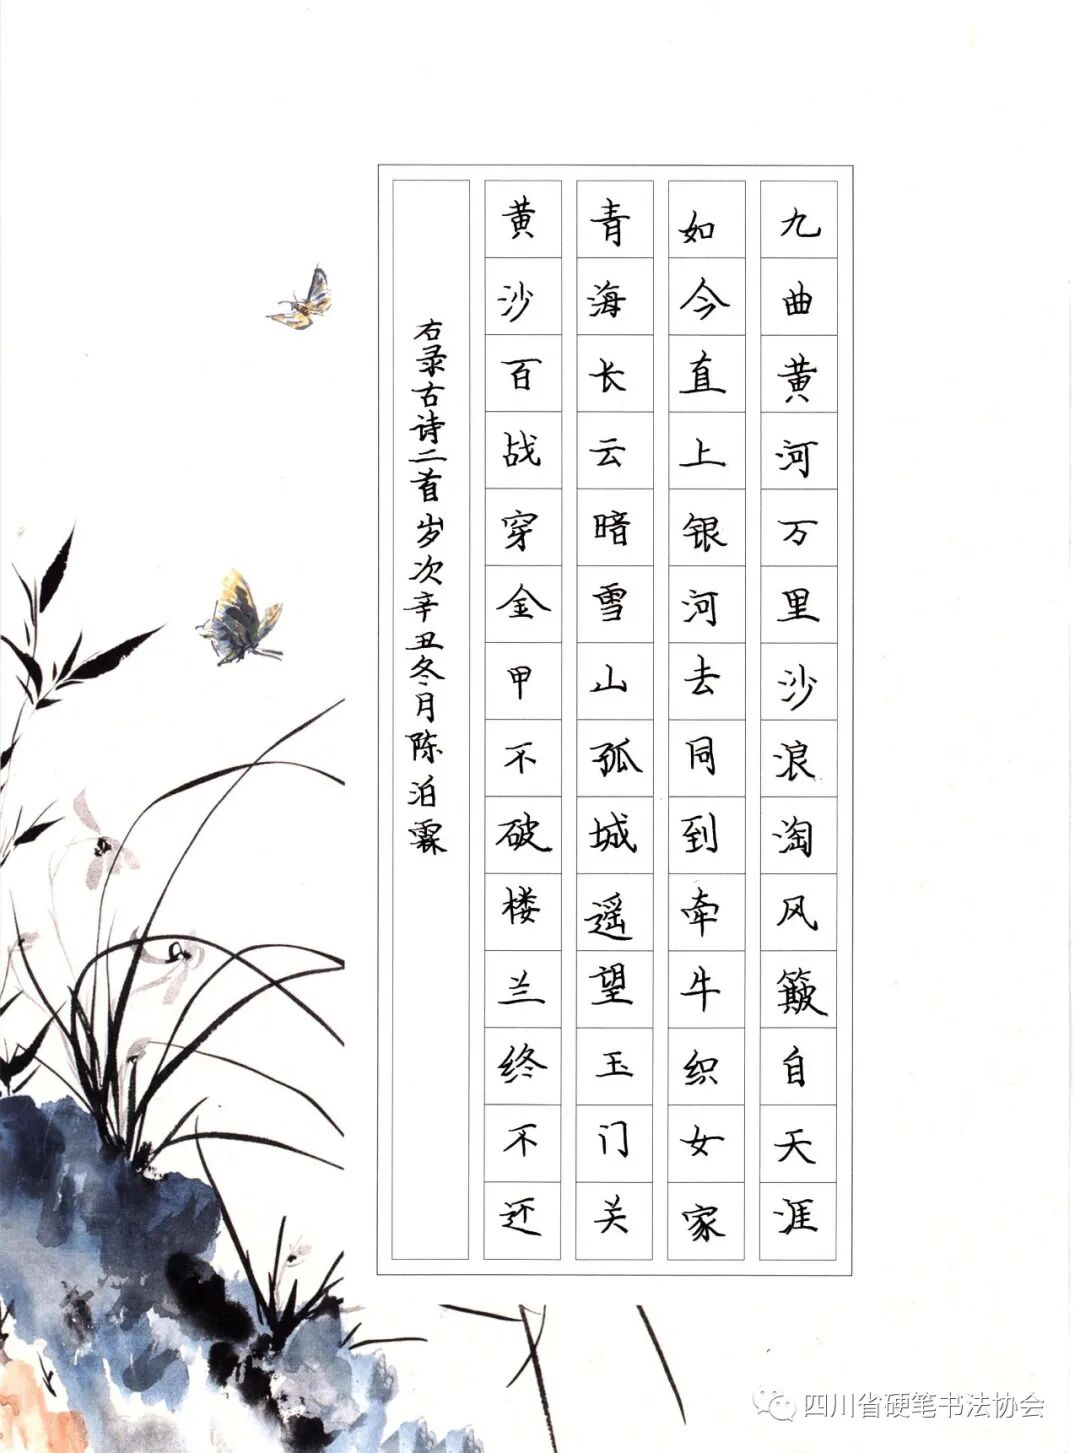 九曲黄河万里沙浪淘风簸自天涯
如今直上银河去同到牵牛织女家
青海长云暗雪山孤城遥望玉门关
黄沙百战穿金甲不破楼兰终不还
右录古诗二首岁次辛丑冬月陈泊霖
四川省硬笔书法协会